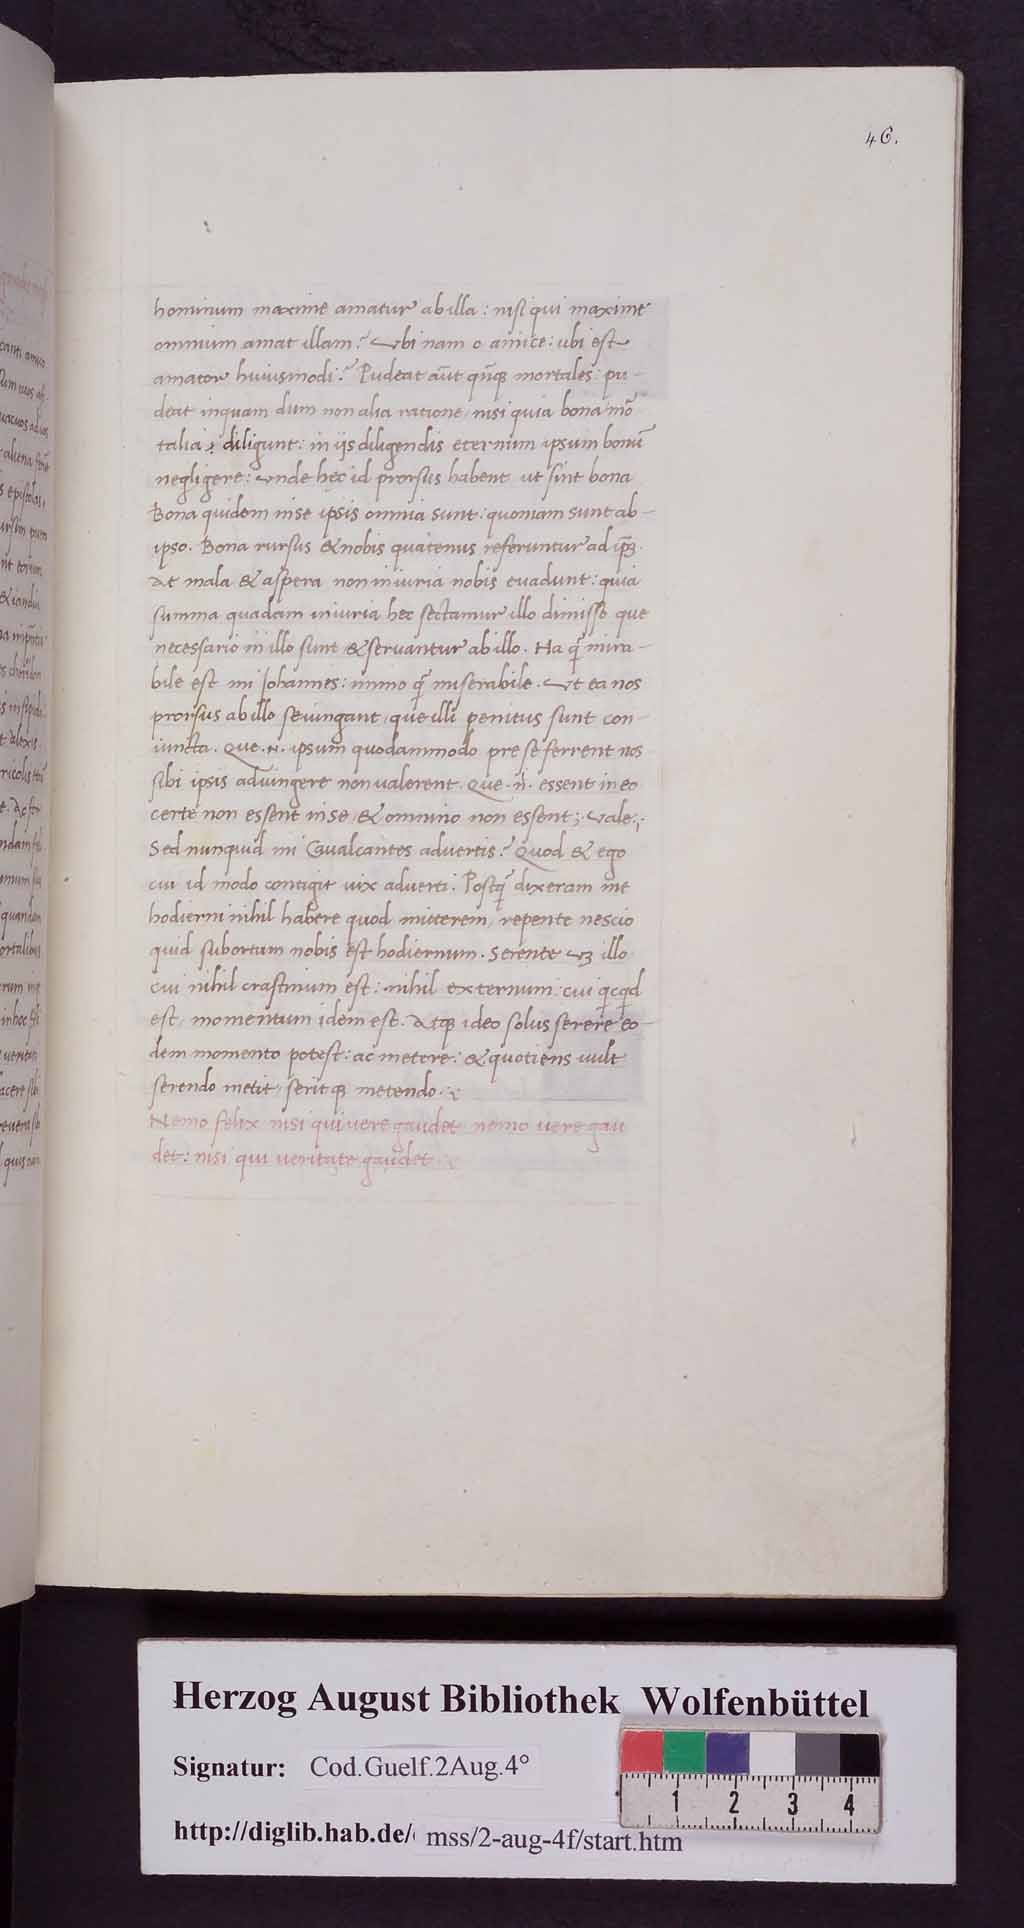 46.
hominum maxime amatur ab illa: nisi qui maxime
omnium amat illam? Ubi nam o amice: ubi est
amator huiusmodi? Pudeat aūt qūqꝫ mortales: pu-
deat inquam dum non alia ratione, nisi quia bona mō
talia diligunt: in ijs diligendis eternum ipsum bonū
negligere: unde hęc id prorsus habent ut sint bona
Bona quidem in se ipsis omnia sunt: quoniam sunt ab-
ipso. Bona rursus & nobis quatenus referuntur ad ip̄ꝫ.
At mala & aspera non iniuria nobis evadunt: quia
summa quadam iniuria hec sectamur illo dimisso que
necessario in illo sunt & servantur ab illo. Ha q̄ mira-
bile est mi Johannes: immo q̄ miserabile. Ut ea nos
prorsus ab illo seiungant, que illi penitus sunt con-
iuncta. Que .n. ipsum quodammodo pre se ferrent nos
sibi ipsis adiungere non valerent. Que .n. essent in eo
certe non essent in se, & omnino non essent; Vale;
Sed nunquid mi Cavalcantes advertis? Quod & ego
cui id modo contigit vix adverti. Postq̄ dixeram me
hodierni nihil habere quod mitterem, repente nescio
quid subortum nobis est hodiernum. Serente uꝫ illo
cui nihil crastinum est: nihil externum: cui qcqd
est, momentum idem est. Atqꝫ ideo solus serere eo-
dem momento potest: ac metere: & quotiens vult
serendo metit, seritqꝫ metendo.
Nemo felix nisi qui vere gaudet nemo vere gau
det: nisi qui veritate gaudet
Herzog August Bibliothek Wolfenbüttel
Signatur: Cod.Guelf.2Aug.4°
http://diglib.hab.de/ mss/2-aug-4f/start.htm
1 2 3 4